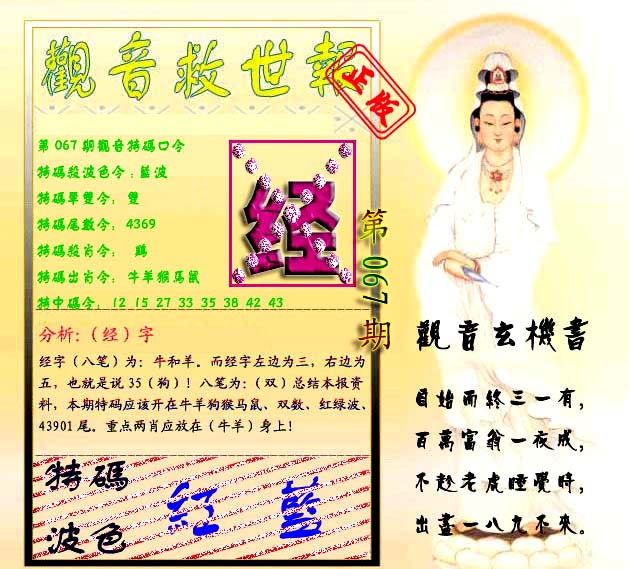 觀音救世報
正版
第 067 期觀音特碼口令
特碼殺波色令：藍波
特碼單雙令： 雙
特碼尾數令： 4369
特碼殺肖令： 鷄
特碼出肖令： 牛羊猴馬鼠
特中碼令： 12 15 27 33 35 38 42 43
经
第067期
分析:（经）字
经字（八笔）为：牛和羊。而经字左边为三，右边为
五，也就是说 35（狗）！八笔为：（双）总结本报资
料，本期特码应该开在牛羊狗猴马鼠、双数、红绿波、
43901 尾。重点两肖应放在（牛羊）身上！
特碼
波色
紅 藍
觀音玄機書
自始而終三一有，
百萬富翁一夜成，
不趁老虎睡覺時，
出盡一八九不來。